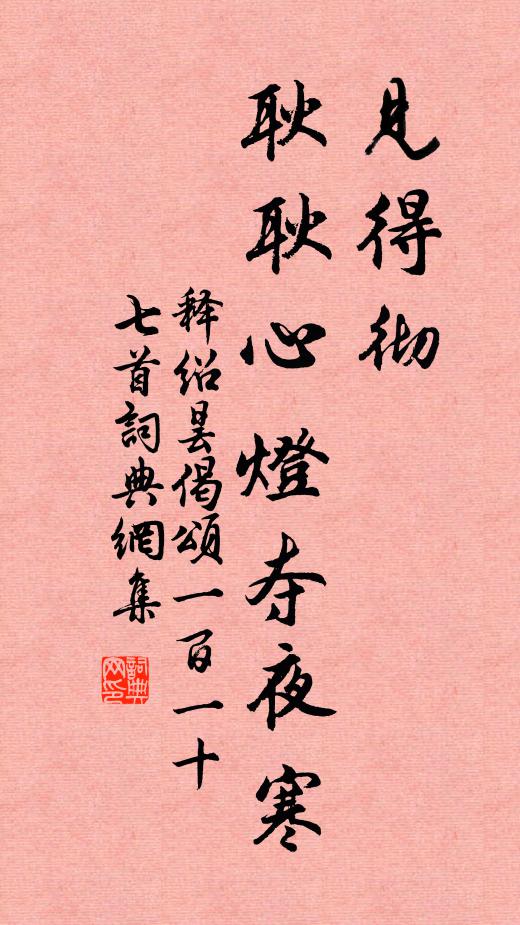 见得彻
耿耿心燈夺夜寒
释绍昙偈頌一百一十
七首詞典網集
詞典
网印